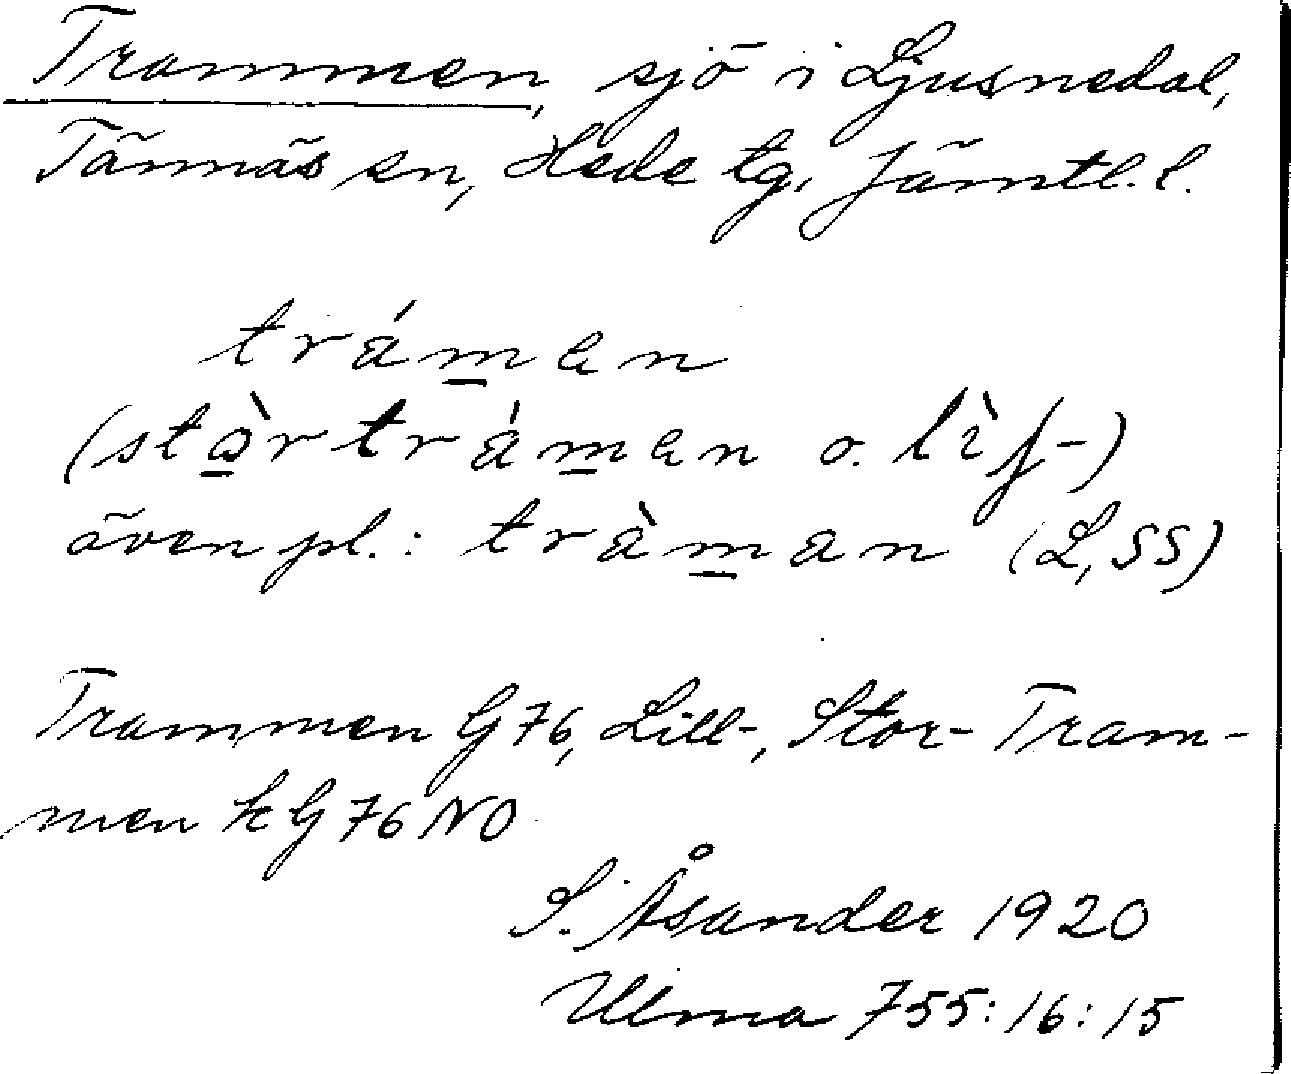 Trammen, sjö i Ljusnedal,
Tännäs sn, Hede tg, Jämtl. l.
trám̲en
(stò̲rtrám̲en o. lìf-)
även pl.: tràm̲an (L, SS)
Trammen G 76, Lill-, Stor-Tram-
men k G 76 NO
S. Åsander 1920
Ulma 755:16:15